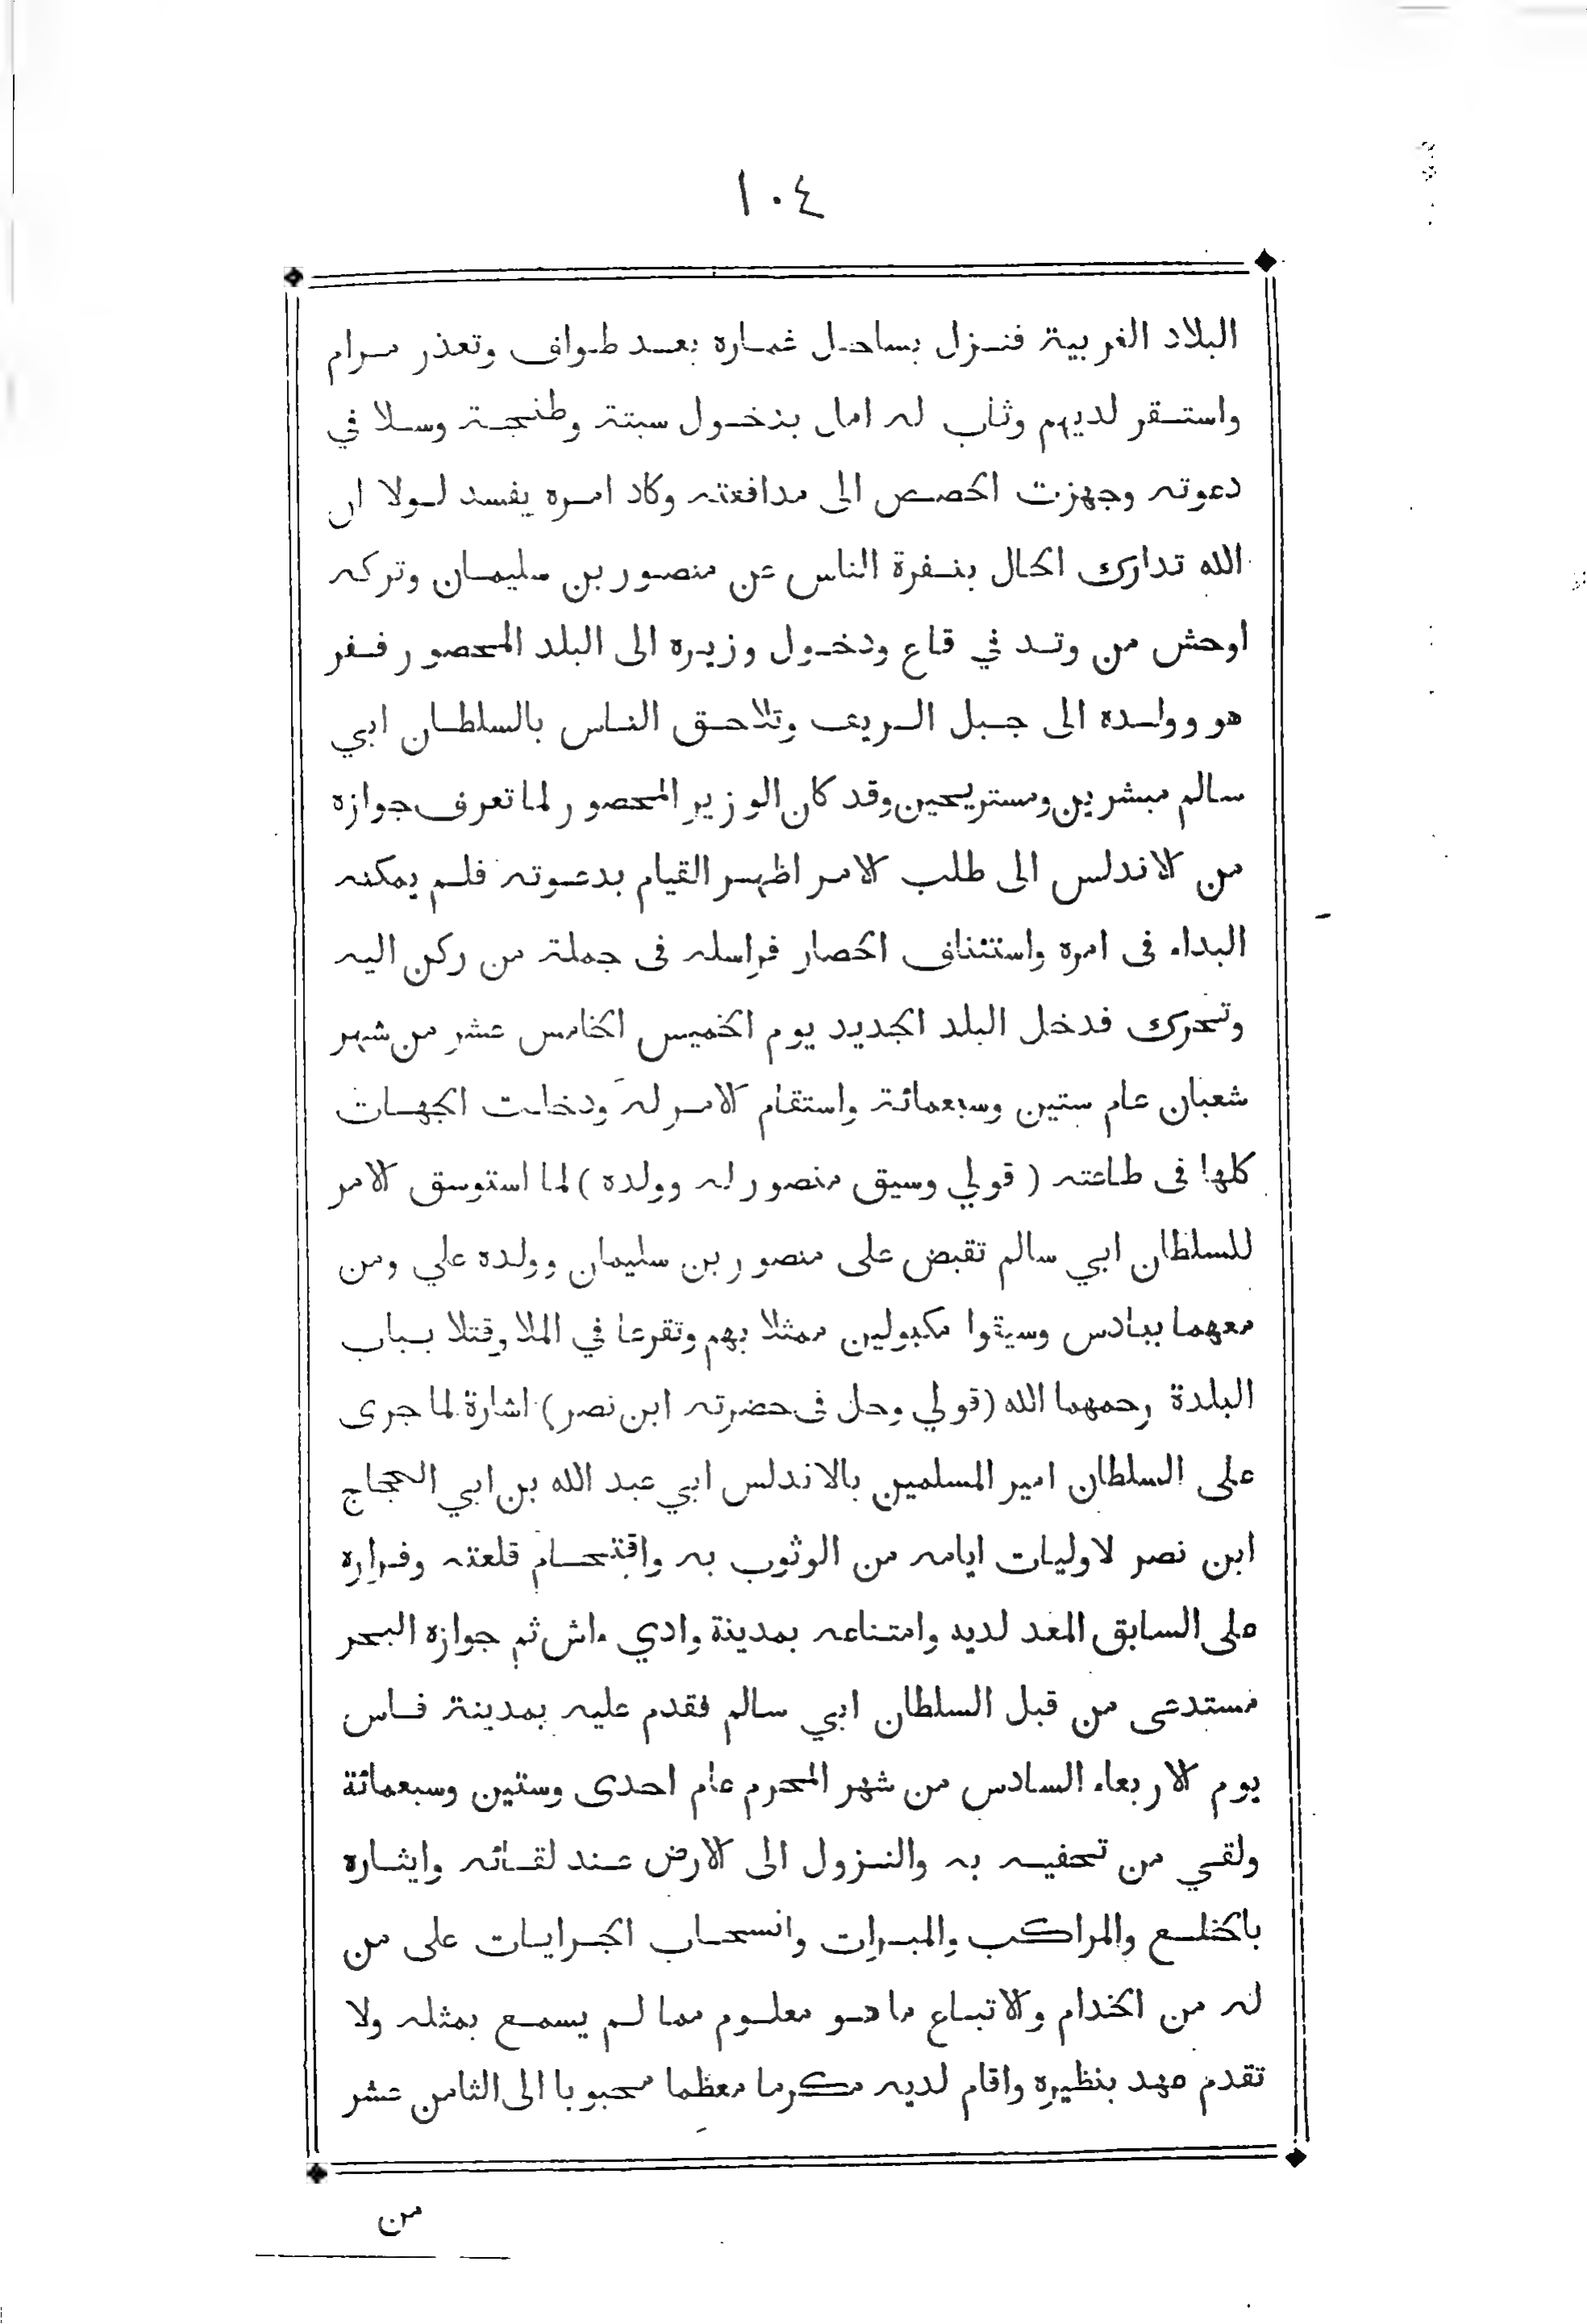 ١٠٤
البلاد الغربية فنزل بساحل غماره بعد طواف وتعذر مرام
واستقر لديهم وثاب له امل بدخول سبتة وطنجة وسلا في
دعوته وجهزت الحصص الى مدافعته وكاد امره يفسد لولا ان
الله تدارك الحال بنفرة الناس عن منصور بن سليمان وتركه
اوحش من وتد في قاع ودخول وزيره الى البلد المحصور ففر
هو وولده الى جبل الريف وتلاحق الناس بالسلطان ابي
سالم مبشرين ومستريحين وقد كان الوزير المحصور لما تعرف جوازه
من الاندلس الى طلب الامر اظهر القيام بدعوته فلم يمكنه
البداء فى امره واستئناف الحصار فراسله فى جملة من ركن اليه
وتحرك فدخل البلد الجديد يوم الخميس الخامس عشر من شهر
شعبان عام ستين وسبعمائة واستقام الامر له ودخلت الجهات
كلها فى طاعته ( قولي وسيق منصور له وولده ) لما استوسق الامر
للسلطان ابي سالم تقبض على منصور بن سليمان وولده علي ومن
معهما ببادس وسيقوا مكبولين ممثلا بهم وتقرعا في الملا وقتلا بباب
البلدة رحمهما الله (قولي وحل فى حضرته ابن نصر) اشارة لما جرى
على السلطان امير المسلمين بالاندلس ابي عبد الله بن ابي الحجاج
ابن نصر لاوليات ايامه من الوثوب به واقتحام قلعته وفراره
على السابق المعد لديه وامتناعه بمدينة وادي ءاش ثم جوازه البحر
مستدعى من قبل السلطان ابي سالم فقدم عليه بمدينة فاس
يوم الاربعاء السادس من شهر المحرم عام احدى وستين وسبعمائة
ولقي من تحفيه به والنزول الى الارض عند لقائه وايثاره
بالخلع والمراكب والمبرات وانسحاب الجرايات على من
له من الخدام والاتباع ما هو معلوم مما لم يسمع بمثله ولا
تقدم عهد بنظيره واقام لديه مكرما معظما محبوبا الى الثامن عشر
من